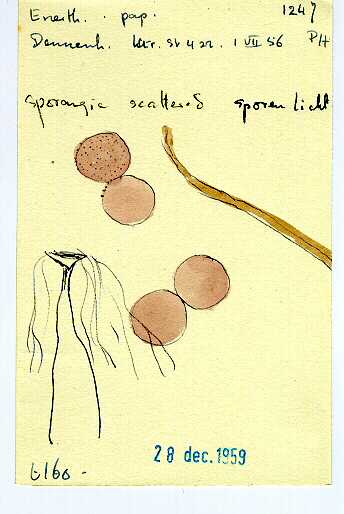 Enerth. . pap. 1247
Dennenh. ktr. St 422. 1 VII 56 PH
sporangia scattered sporen licht
28 dec. 1959